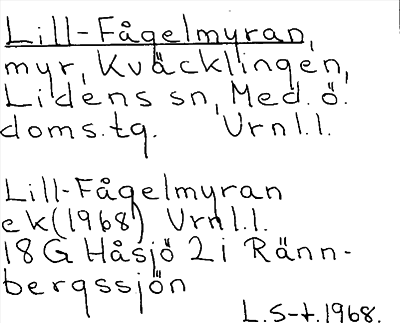 Lill-Fågelmyran,
myr, Kväcklingen,
Lidens sn, Med. ö.
doms.tg. Urnl.l.
Lill-Fågelmyran
ek(1968) Urnl.l.
18G Håsjö 2i Ränn-
bergssjön
L.S-t.1968.